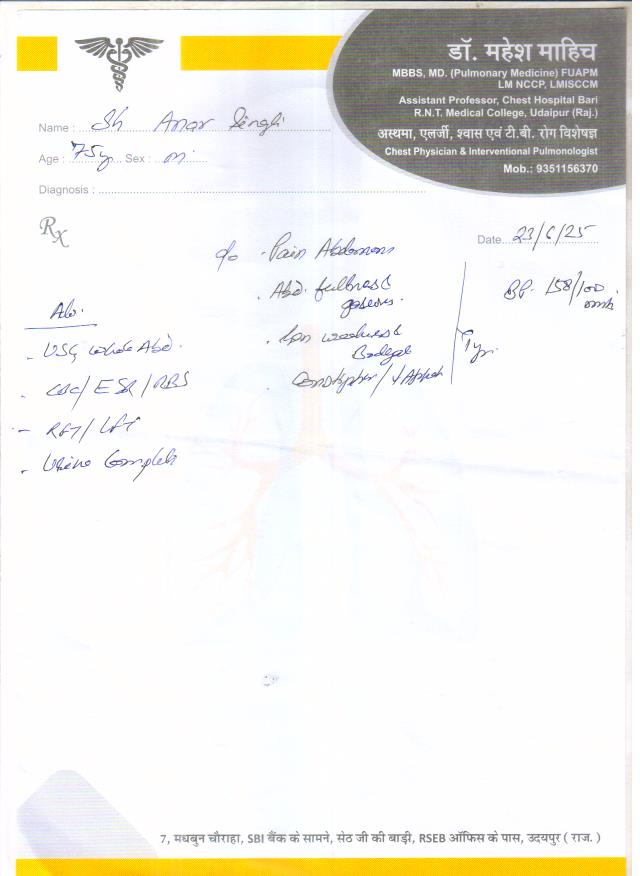 डॉ. महेश माहिच
MBBS, MD. (Pulmonary Medicine) FUAPM
LM NCCP, LMISCCM
Assistant Professor, Chest Hospital Bari
R.N.T. Medical College, Udaipur (Raj.)
अस्थमा, एलर्जी, श्वास एवं टी.बी. रोग विशेषज्ञ
Chest Physician & Interventional Pulmonologist
Mob.: 9351156370
Name : Sh Amar Singh
Age : 75y Sex : m
Diagnosis :
Rx
Date 23/6/25
c/o . Pain Abdomen
. Abd. fullness &
BP. 158/100
. weakness &
Adv.
- USG whole Abd.
. CBC / ESR / RBS
- RFT / LFT
- Urine Complete
7, मधबुन चौराहा, SBI बैंक के सामने, सेठ जी की बाड़ी, RSEB ऑफिस के पास, उदयपुर ( राज. )